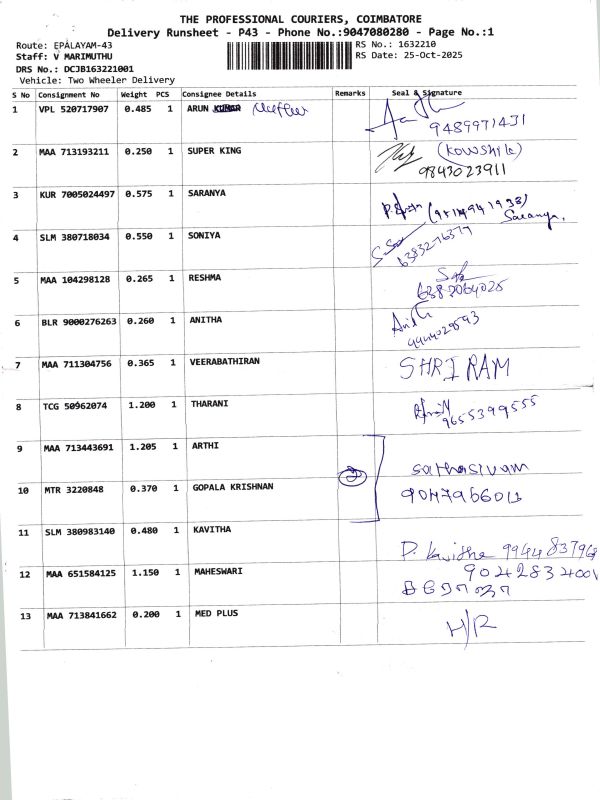 THE PROFESSIONAL COURIERS, COIMBATORE
Delivery Runsheet - P43 - Phone No.:9047080280 - Page No.:1
Route: EPALAYAM-43
Staff: V MARIMUTHU
DRS No.: DCJB163221001
Vehicle: Two Wheeler Delivery
RS No.: 1632210
RS Date: 25-Oct-2025
S No Consignment No Weight PCS Consignee Details Remarks Seal & Signature
1 VPL 520717907 0.485 1 ARUN KUMAR
9489971431
2 MAA 713193211 0.250 1 SUPER KING (KOWSHIK)
9843023911
3 KUR 7005024497 0.575 1 SARANYA
Saranya,
4 SLM 380718034 0.550 1 SONIYA
5 MAA 104298128 0.265 1 RESHMA
6 BLR 9000276263 0.260 1 ANITHA
7 MAA 711304756 0.365 1 VEERABATHIRAN SHRI RAM
8 TCG 50962074 1.200 1 THARANI
9655399555
9 MAA 713443691 1.205 1 ARTHI
2 sathasivam
10 MTR 3220848 0.370 1 GOPALA KRISHNAN
11 SLM 380983140 0.480 1 KAVITHA
P. Kavitha
12 MAA 651584125 1.150 1 MAHESWARI
9042834001
13 MAA 713841662 0.200 1 MED PLUS H/R